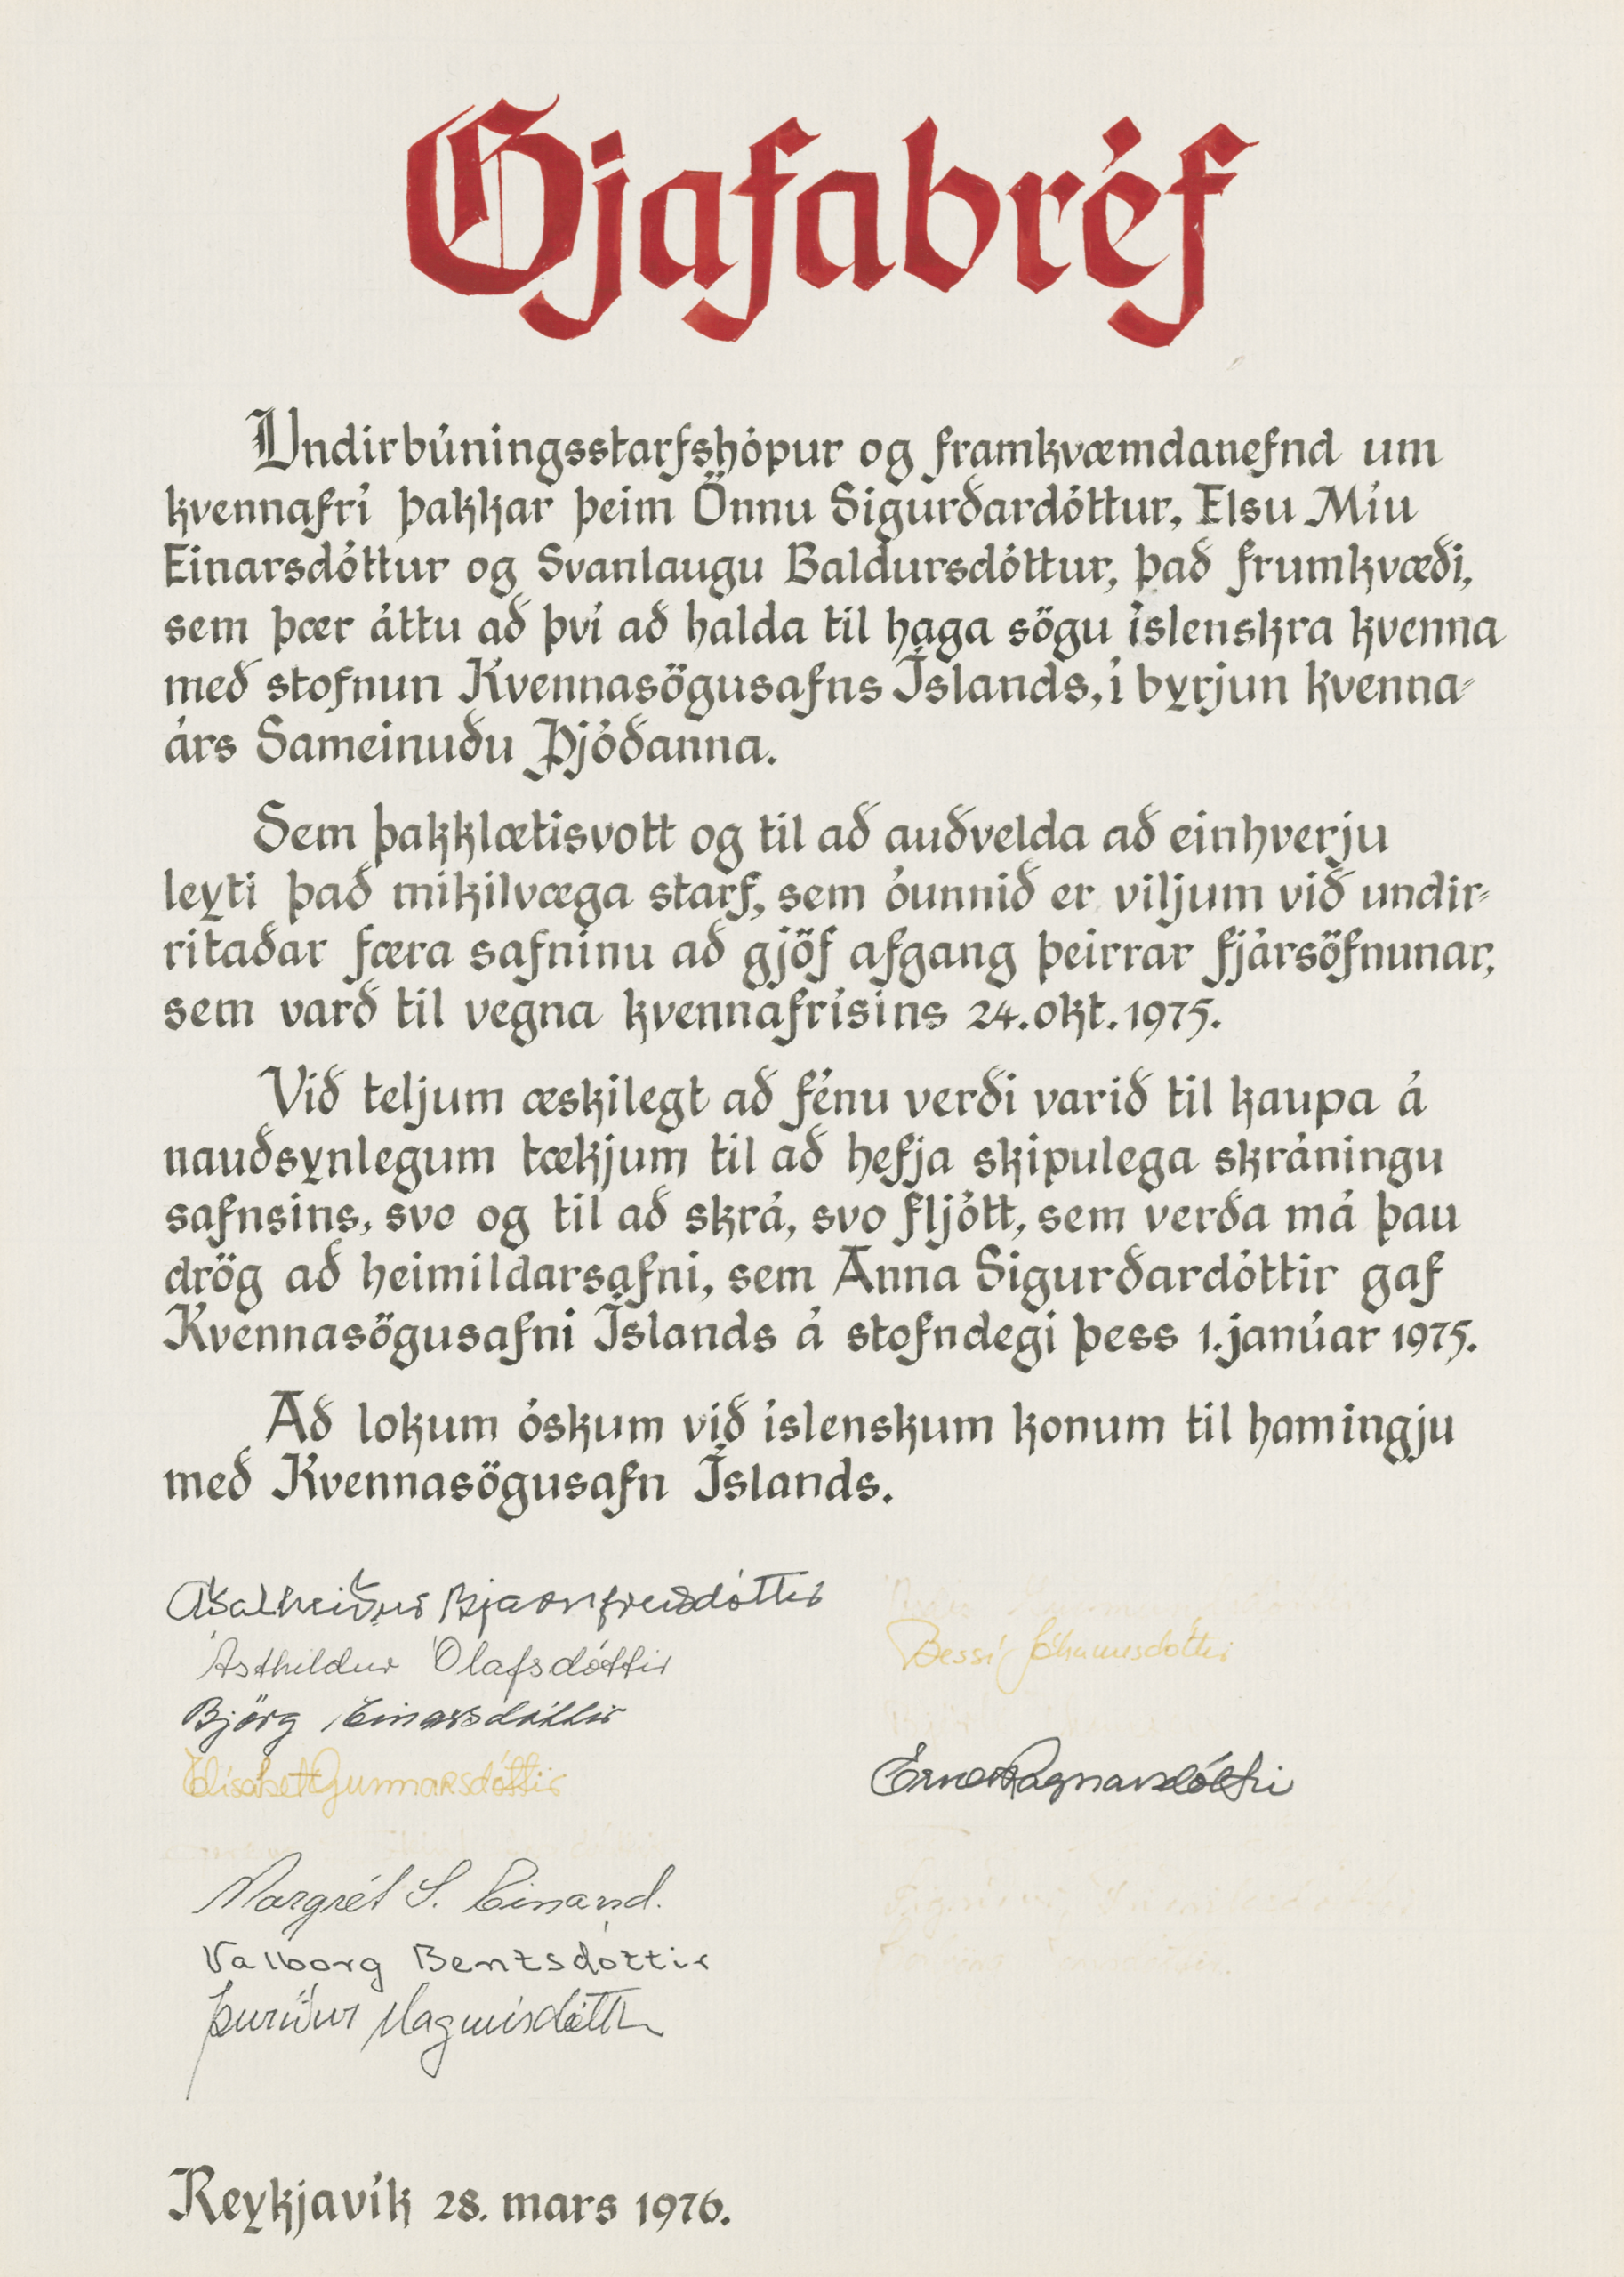 Gjafabréf
Undirbúningsstarfshópur og framkvæmdanefnd um
kvennafrí þakkar þeim Önnu Sigurðardóttur, Elsu Míu
Einarsdóttur og Svanlaugu Baldursdóttur, það frumkvæði,
sem þær áttu að því að halda til haga sögu íslenskra kvenna
með stofnun Kvennasögusafns Íslands, í byrjun kvenna-
árs Sameinuðu Þjóðanna.
Sem þakklætisvott og til að auðvelda að einhverju
leyti það mikilvæga starf, sem óunnið er viljum við undir-
ritaðar færa safninu að gjöf afgang þeirrar fjársöfnunar,
sem varð til vegna kvennafrísins 24. okt. 1975.
Við teljum æskilegt að fénu verði varið til kaupa á
nauðsynlegum tækjum til að hefja skipulega skráningu
safnsins, svo og til að skrá, svo fljótt, sem verða má þau
drög að heimildarsafni, sem Anna Sigurðardóttir gaf
Kvennasögusafni Íslands á stofndegi þess 1. janúar 1975.
Að lokum óskum við íslenskum konum til hamingju
með Kvennasögusafn Íslands.
Aðalheiður Bjarnfreðsdóttir
Ásthildur Ólafsdóttir
Bessí Jóhannesdóttir
Björg Einarsdóttir
Elísabet Gunnarsdóttir
Erna Ragnarsdóttir
Margrét S. Einarsd.
Valborg Bentsdóttir
Þuríður Magnúsdóttir
Reykjavík 28. mars 1976.